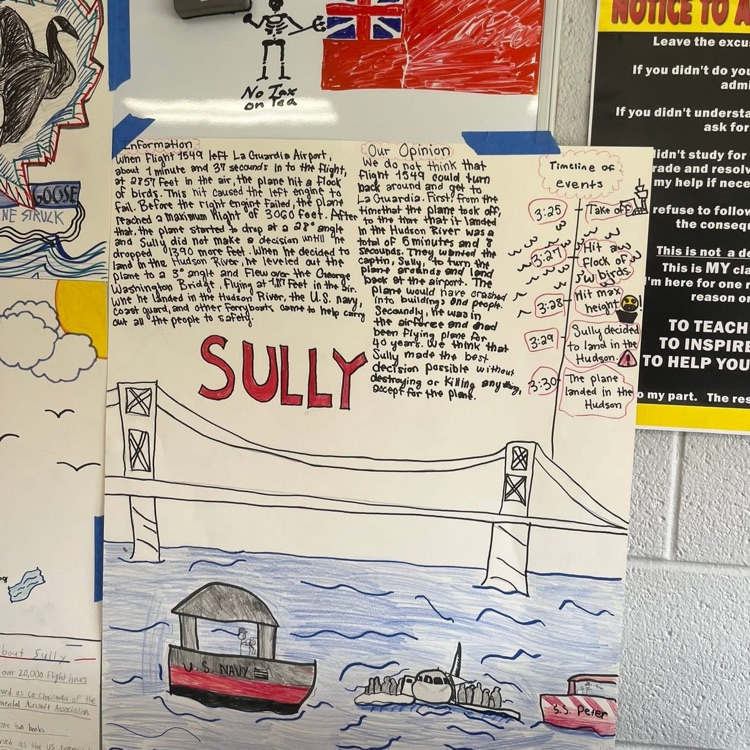 No Tax
on Tea
NOTICE TO A
Leave the excu
If you didn't do yo
admi
If you didn't understa
ask for
didn't study for
rade and resolv
my help if nece
refuse to follow
the consequ
This is not a de
This is MY cla
I'm here for one r
reason o
TO TEACH
TO INSPIRE
TO HELP YOU
o my part. The res
GOOSE
NE STRUCK
Information
When Flight 1549 left La Guardia Airport,
about 1 minute and 37 seconds in to the flight,
at 2857 feet in the air, the plane hit a flock
of birds. This hit caused the left engine to
fail. Before the right engine failed, the plane
reached a maximum flight of 3060 feet. After
that, the plane started to drop at a 28° angle
and Sully did not make a decision until he
dropped 1,390 more feet. When he decided to
land in the Hudson River, he leveled out the
plane to a 3° angle and Flew over the George
Washington Bridge, Flying at feet in the air.
Whe he landed in the Hudson River, the U.S. navy,
coast guard, and other ferryboats came to help carry
out all the people to safety.
Our Opinion
We do not think that
flight 1549 could turn
back around and get to
La Guardia. First, from the
time that the plane took off,
to the time that it landed
in the Hudson River was a
total of 5 minutes and 8
seconds. They wanted the
captin, Sully, to turn the
plane around and land
back at the airport. The
plane would have crashed
into buildings and people.
Secoundly, he was in
the airforce and had
been flying plane for
40 years. We think that
Sully made the best
decision possible without
destroying or killing anything,
except for the plane.
Timeline of
events
3:25 Take off
3:27 Hit a
flock of
birds
3:28 Hit max
height
3:29 Sully decided
to land in the
Hudson
3:30 The plane
landed in the
Hudson
SULLY
U.S. NAVY
S.S. Peter
bout Sully
over 20,000 flight hours
ved as co-chairman of the
two books